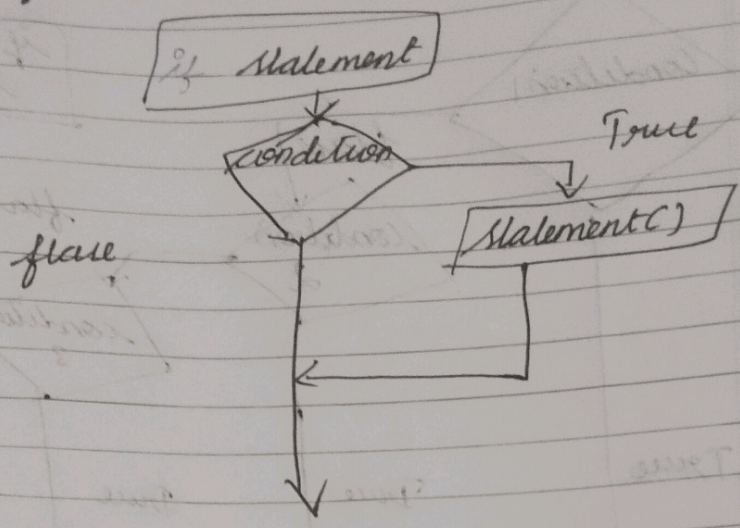 if statement
condition
True
statement()
flase